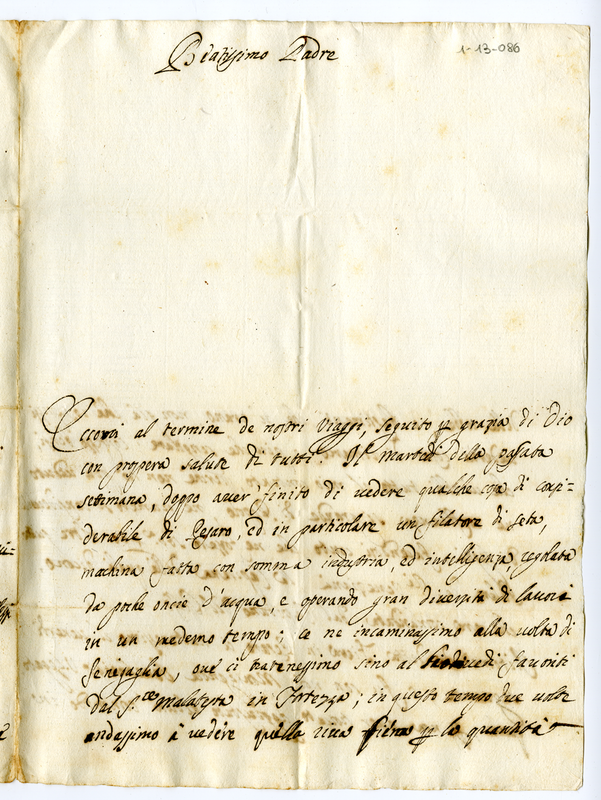 Beatissimo Padre
1-13-086
Eccomi al termine de nostri Viaggi, seguito p grazia di Dio
con prospera salute di tutti. Il martedi della passata
settimana, doppo aver finito di vedere qualche cosa di consi-
derabile di Pesaro, ed in particolare un filatore di seta,
machina fatta con somma industria, ed intelligenza, regolata
da poche oncie d'acqua, e operando gran diversità di lavori
in un medemo tempo; ce ne incaminassimo alla volta di
Senegaglia, ove ci tratenessimo sino al favoriti
dal S.re Malatesta in Fortezza; in questo tempo due volte
andassimo à vedere quella ricca fiera p la quantità